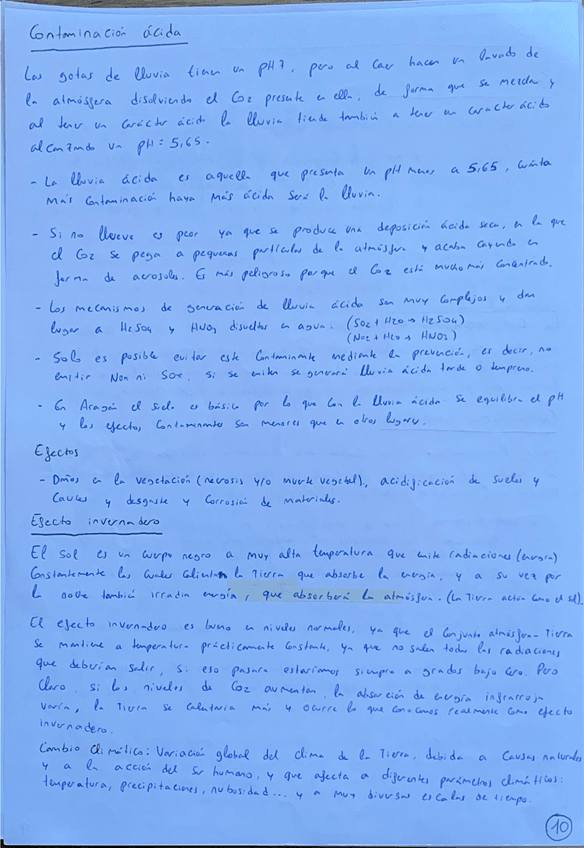 Contaminación ácida
Las gotas de lluvia tienen un pH 7, pero al caer hacen un lavado de
la atmósfera disolviendo el CO2 presente en ella, de forma que se mezcla y
al tener un carácter ácido la lluvia tiende también a tener un carácter ácido
alcanzando un pH = 5,65.
- La lluvia ácida es aquella que presenta un pH menor a 5,65, cuánta
más contaminación haya más ácida será la lluvia.
- Si no llueve es peor ya que se produce una deposición ácida seca, en la que
el CO2 se pega a pequeñas partículas de la atmósfera y acaba cayendo en
forma de aerosoles. Es más peligroso porque el CO2 está mucho más concentrado.
- Los mecanismos de generación de lluvia ácida son muy complejos y dan
lugar a H2SO4 y HNO3 disueltos en agua. (SO2 + H2O → H2SO4)
(NO2 + H2O → HNO3)
- Solo es posible evitar este contaminante mediante la prevención, es decir, no
emitir NOx ni SOx. Si se emiten se generará lluvia ácida tarde o temprano.
- En Aragón el suelo es básico por lo que con la lluvia ácida se equilibra el pH
y los efectos contaminantes son menores que en otros lugares.
Efectos
- Daños en la vegetación (necrosis y/o muerte vegetal), acidificación de suelos y
cauces y desgaste y corrosión de materiales.
Efecto invernadero
El sol es un cuerpo negro a muy alta temperatura que emite radiaciones (energía)
constantemente las cuales calientan la Tierra que absorbe la energía, y a su vez por
la noche también irradia energía, que absorberá la atmósfera. (La Tierra actúa como el sol).
El efecto invernadero es bueno en niveles normales, ya que el conjunto atmósfera-Tierra
se mantiene a temperatura prácticamente constante, ya que no salen todas las radiaciones
que deberían salir, si eso pasara estaríamos siempre a grados bajo cero. Pero
claro, si los niveles de CO2 aumentan, la absorción de energía infrarroja
varía, la Tierra se calentaría más y ocurre lo que conocemos realmente como efecto
invernadero.
Cambio climático: Variación global del clima de la Tierra, debida a causas naturales
y a la acción del ser humano, y que afecta a diferentes parámetros climáticos:
temperatura, precipitaciones, nubosidad... y a muy diversas escalas de tiempo.
10